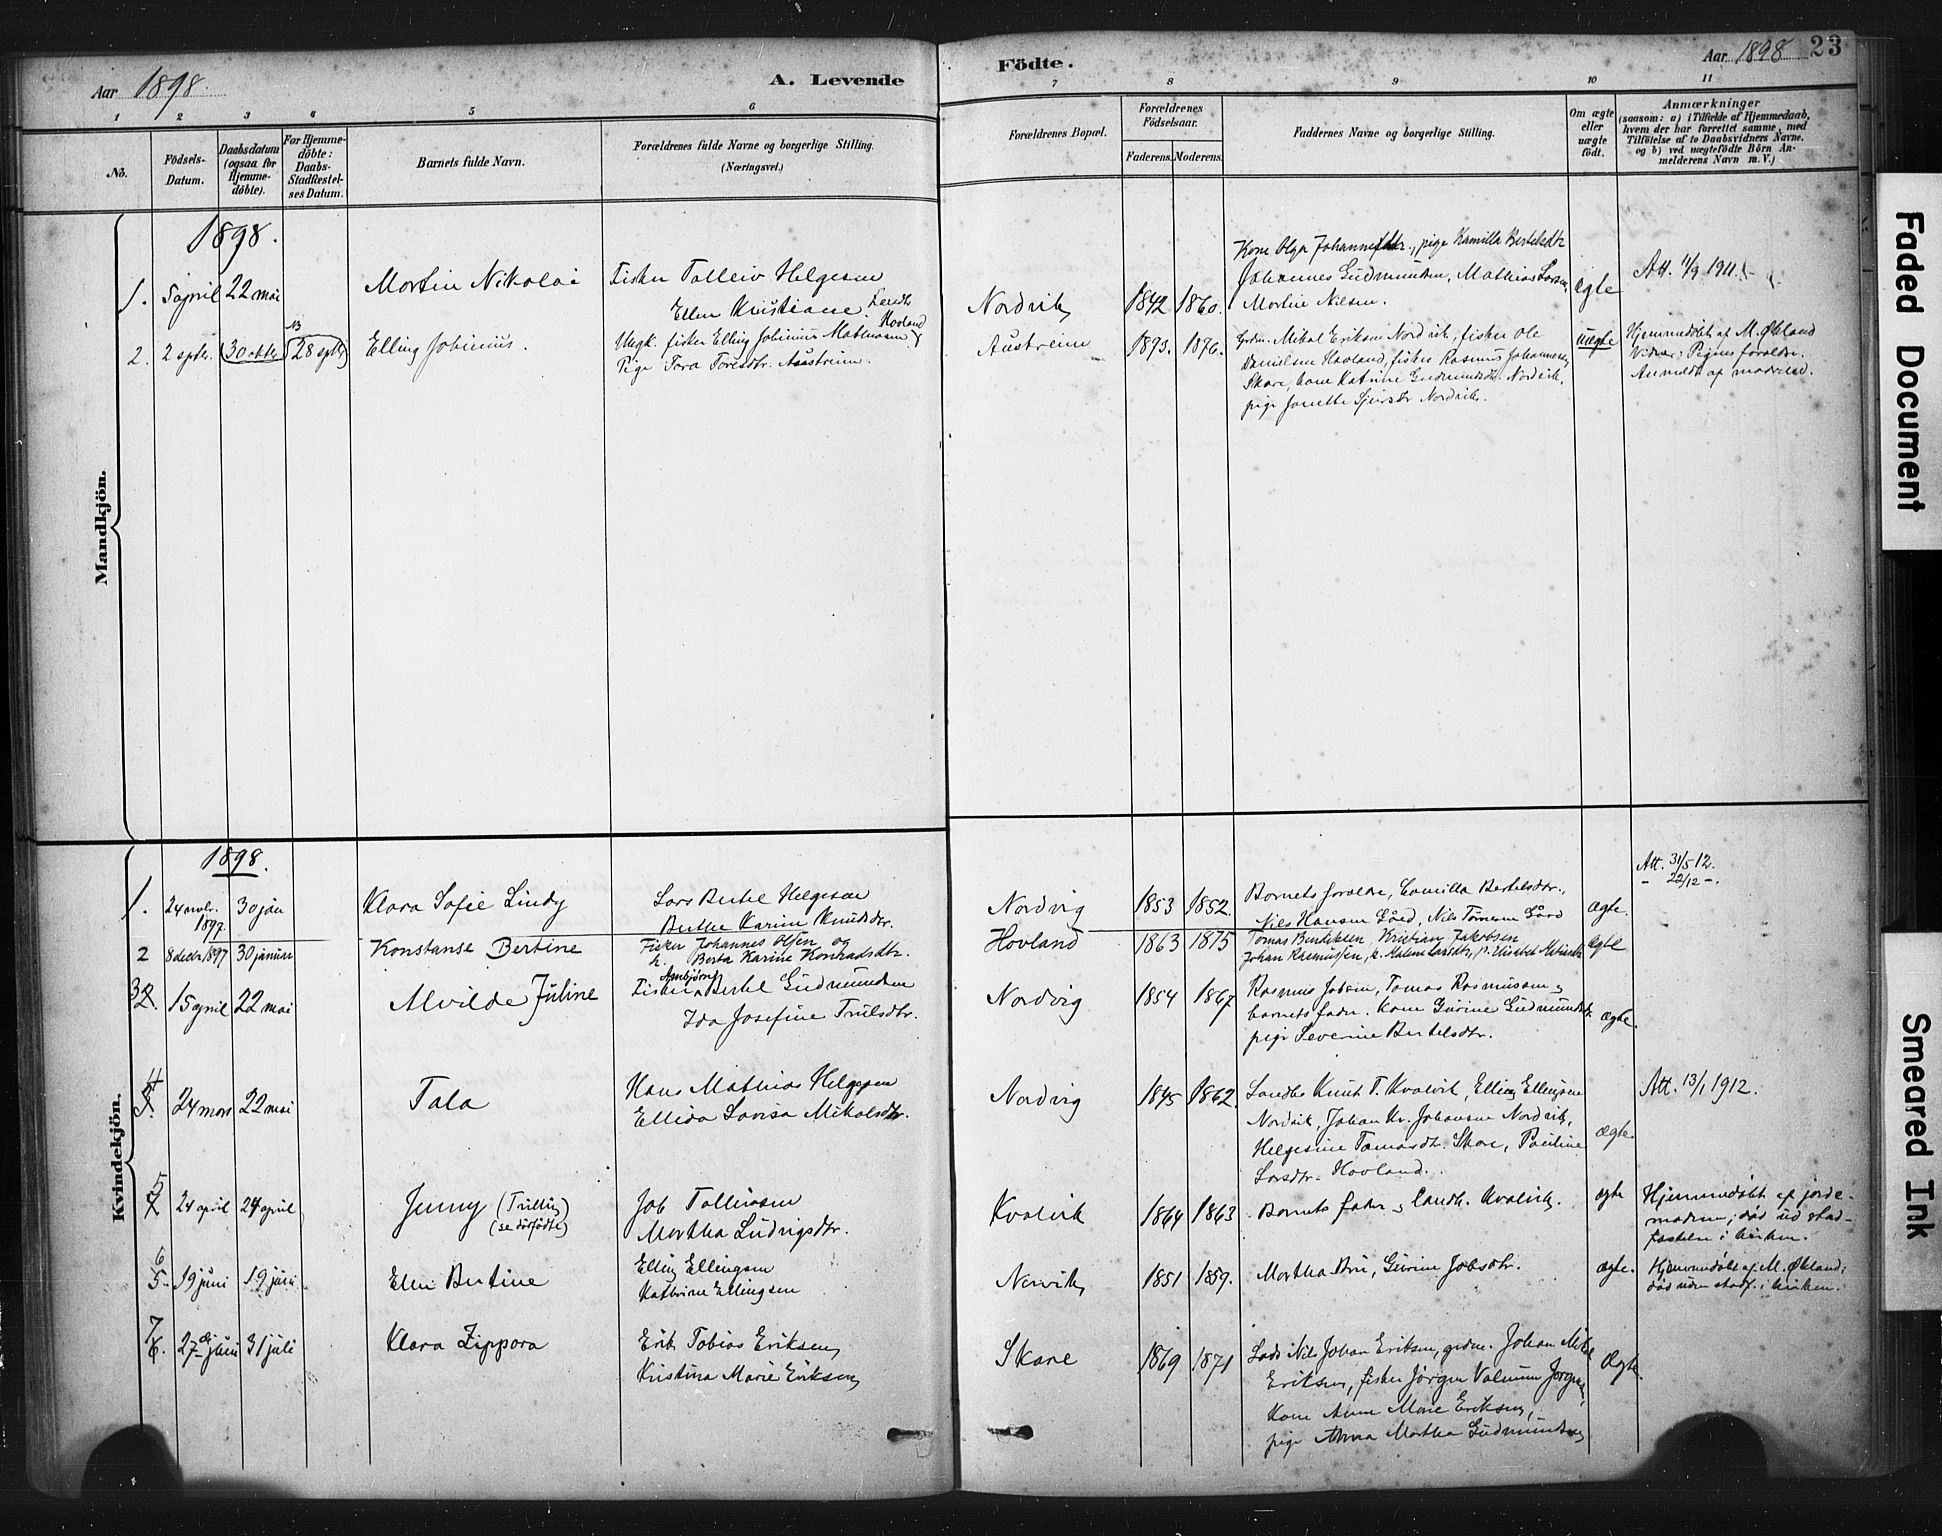 Aar 1898.
A. Levende
Födte.
Aar 1898
23
1
2
3
4
5
6
7
8
9
10
11
No.
Födsels-
Datum.
Daabsdatum
(ogsaa for
Hjemme-
döbte).
For Hjemme-
döbte:
Daabs-
Stadfæstel-
ses Datum.
Barnets fulde Navn.
Forældrenes fulde Navne og borgerlige Stilling.
(Næringsvei.)
Forældrenes Bopæl.
Forældrenes
Födselsaar.
Faderens. Moderens.
Faddernes Navne og borgerlige Stilling.
Om ægte
eller
uægte
födt.
Anmærkninger
(saasom: a) i Tilfælde af Hjemmedaab,
hvem der har forrettet samme, med
Tilföielse af to Daabsvidners Navne.
og b) ved uægtefödte Börn An-
melderens Navn m. V.)
Mandkjön.
1898.
1.
5 april
22 mai
Martin Nikolai
Fisker Talleiv Helgesen
Ellen Kristiane
Nordvik
1842
1860.
Kone Olga, pige Kamilla Bertelsdtr
Johannes Gudmundsen, Mathias Larsen,
Martin Nilsen.
ægte
Att. 1/9 1911.
2.
2 sptbr.
30 oktbr
NB
28 sptbr
Elling Johinius.
Ungk. fisker Elling Johinius Hovland
Pige Tora Toresdtr. Austreim.
Austreim
1873.
1876.
Mikal Eriksen Nordvik, fisker Ole
Danielsen Hovland, fisker Rasmus Johannesen
Skare, kone Katrine Gudmundsdtr. Nordvik,
pige Nordvik.
uægte
Hjemmedöbt af M. Økland
Vidner: Pigens forældre.
Anmeldt af moderen.
Kvindekjön.
1898.
1.
24 novbr.
1897.
30 jan
Klara Sofie Lindy
Lars Bertel Helgesen
Karine Knutsdtr.
Nordvig
1853
1852.
Barnets forældre, Camilla Bertelsdtr.,
Nils Hansen, Nils
ægte.
Att. 31/5 12.
- 22/12 -.
2
8 decbr 1897
30 januar
Konstanse Bertine
Fisker Johannes Olsen og
k. Berta Karine Konradsdtr.
Hovland
1863
1875
Tomas Bendiksen, Kristian Jakobsen
Johan Rasmussen, k. Malene Larsdtr, p. Elisabet
ægte
3
15 april
22 mai
Alvilde Juline
Fisker Bertel Gudmundsen
Ida Josefine Trulsdtr.
Nordvig
1854
1867
Rasmus Jobsen, Tomas Rasmussen og
barnets fader. kone Gurine Gudmundsdtr.
pige Severine Bertelsdtr.
ægte.
4
24 mars
22 mai
Tala
Hans Mathias Helgesen
Ellida Lovisa Mikalsdtr.
Nordvig
1845
1862.
Landbr. Knut T. Kvalvik, Elling Ellingsen
Nordvik, Johan Kr. Johansen Nordvik,
Helgesine Tomasdtr. Skare, Pauline
Larsdtr. Hovland.
ægte.
Att. 13/1 1912.
5
24 april
24 april
Jenny (Trilling)
(se dödfödte)
Job Talleivsen
Martha Ludvigsdtr.
Kvalvik
1864
1863
Barnets fader, landbr. Kvalvik.
ægte
Hjemmedöbt af jorde-
moderen; död ud. stad-
fæstelse i kirken.
6
5.
19 juni
19 juni
Ellen Bertine
Elling Ellingsen
Kathrine Ellingsen
Nervik
1851
1859.
Martha Bru, Gurine Jobsdtr.
ægte.
Hjemmedöbt af M. Økland;
död uden stadf. i kirken.
7
6.
27 juni
31 juli
Klara Zippora
Erik Tobias Eriksen
Kristina Marie Eriksen
Skare
1869
1871
Nils Johan Eriksen, grdm. Johan Mikal
Eriksen, fisker Jörgen,
Kone Anne Marie Eriksen,
pige Anna Martha Gudmundsen
Ægte.
Faded Document
Smeared Ink